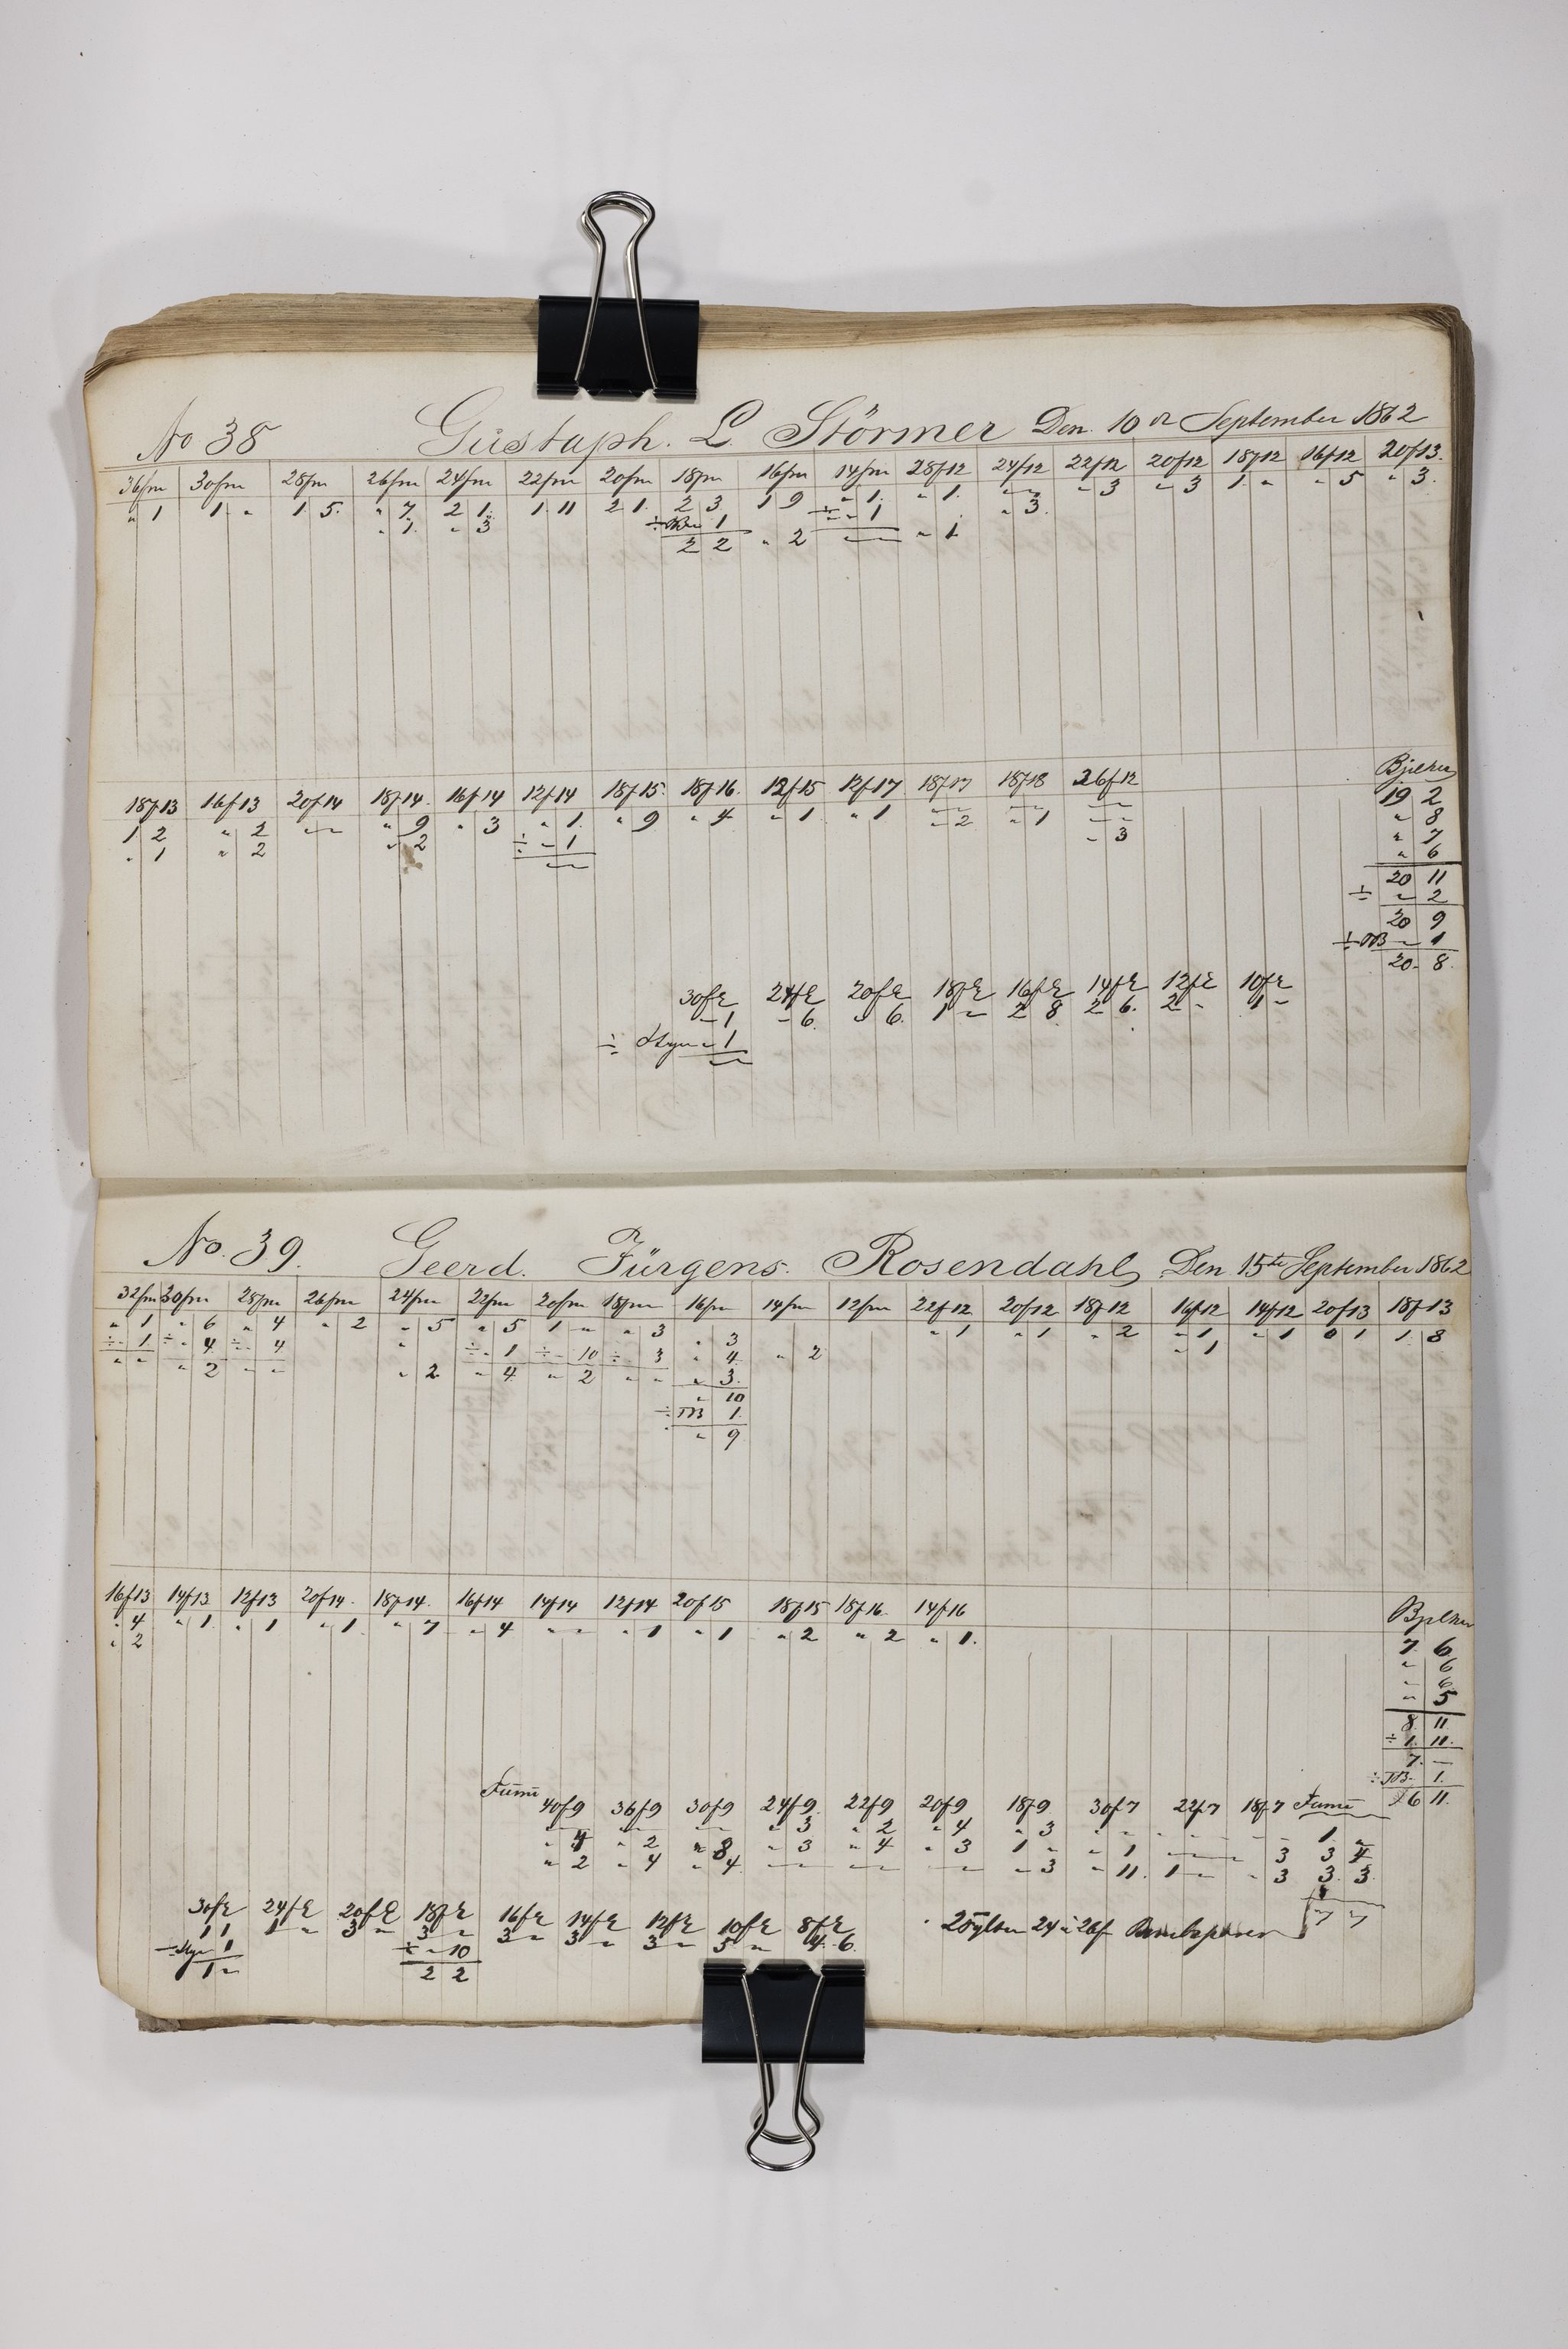 No 38 Gustaph. L. Störmer Den 10de September 1862
36fm 30fm 28fm 26fm 24fm 22fm 20fm 18fm 16fm 14fm 28f12 24f12 22f12 20f12 18f12 16f12 20f13.
" 1 1 " 1 5. " 7 2 1. 1 11 2 1. 2 3 1 9 " 1. " 1. " " " 3 " 3 1 " " 5 " 3.
" 7. " 3 ÷ 1 ÷ " 1 " 3.
2 2 " 2 " 1
18f13 16f13 20f14 18f14. 16f14 12f14 18f15. 18f16. 12f15 12f17 18f17 18f18 26f12 Bjelker
1 2 " 2 " " " 9 " 3 " 1. " 9 " 4 " 1 " 1 " " " " " " 19 2
" 1 " 2 " 2 ÷ " 1 " 2 " 1 " 3 " 8
" 7
" 6
20 11
÷ " 2
20 9
÷ TB " 1
20. 8.
30fE 24fE 20fE 18fE 16fE 14fE 12fE 10fE
" 1 " 6. " 6. 1 " 2 8 2 6. 2 " 1 "
÷ Styr " 1
No. 39. Geerd. Jürgens. Rosendahl Den 15te September 1862
32fm 30fm 28fm 26fm 24fm 22fm 20fm 18fm 16fm 14fm 12fm 22f12 20f12 18f12 16f12 14f12 20f13 18f13
" 1 " 6 " 4 " 2 " 5 " 5 1 " " 3 " 3 " 1 " 1 " 2 " 1 " 1 0 1 1. 8
÷ " 1 ÷ " 4 ÷ " 4 " ÷ " 1 ÷ " 10 ÷ " 3 " 4 " 2 " 1
" " " 2 " " " 2 " 4 " 2 " " " 3.
" 10
÷ TB 1.
" 9
16f13 14f13 12f13 20f14. 18f14. 16f14 14f14 12f14 20f15 18f15 18f16. 14f16 Bjelker
" 4 " 1. " 1 " 1. " 7 " 4 " " " 1 " 1 " 2 " 2 " 1. 7. 6
" 2 " 6
" 6
" 5
8. 11
÷ 1. 11.
7. —
÷ TB. 1.
6 11.
40f9 36f9 30f9 24f9. 22f9 20f9 18f9 30f7 22f7 18f7
" 3 " 2 " 4 " 3 1. "
" 4 " 2 " 8 " 3 " 4 " 3 1 " " 1 3 3 4
" 2 " 4 " 4 " 3 " 11. 1 " " 3 3. 3.
7 "
30fE 24fE 20fE 18fE 16fE 14fE 12fE 10fE 8fE
1 1 1 " 3 " 3 " 3 " 3 " 3 " 5 " 4. 6.
÷ Styr 1 ÷ " 10
1 " 2 2
24 a 26f